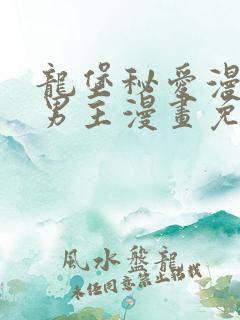 龍堡秘愛漫
男主漫畫免
風水盤龍
未经同意禁止转载